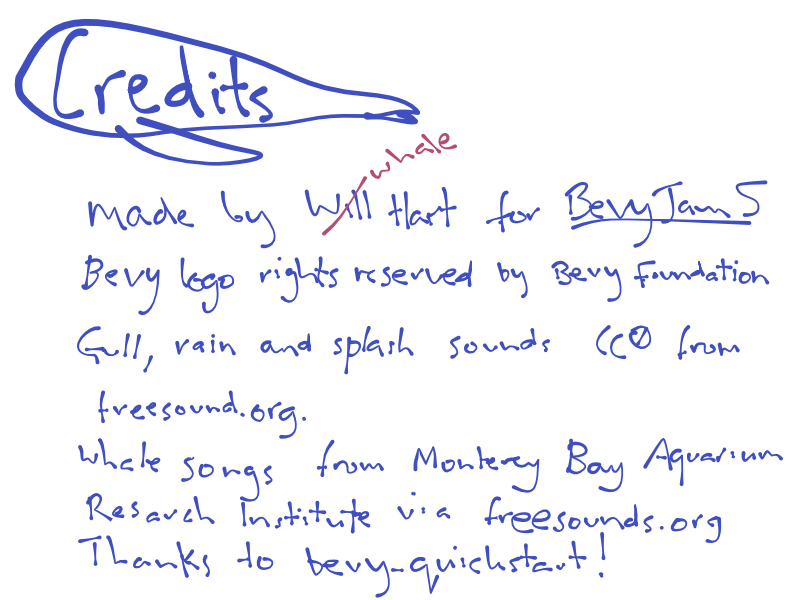 Credits
whale
made by Will Hart for Bevy Jam 5
Bevy logo rights reserved by Bevy Foundation
Gull, rain and splash sounds CC0 from
freesound.org.
Whale songs from Monterey Bay Aquarium
Resarch Institute via freesounds.org
Thanks to bevy-quickstart!